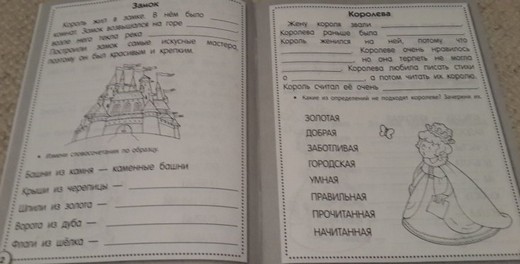 Замок
Король жил в замке. В нём было
комнат. Замок возвышался на горе
возле него текла река
Построили замок самые искусные мастера,
поэтому он был красивым и крепким.
• Измени словосочетания по образцу.
Башни из камня — каменные башни
Крыши из черепицы —
Шпили из золота —
Ворота из дуба —
Флаги из шёлка —
2
Королева
Жену короля звали
Королева раньше была
Король женился на ней, потому что
Королеве очень нравилось
но она терпеть не могла
Королева любила писать стихи
о а потом читать их королю.
Король считал её очень
• Какие из определений не подходят королеве? Зачеркни их.
ЗОЛОТАЯ
ДОБРАЯ
ЗАБОТЛИВАЯ
ГОРОДСКАЯ
УМНАЯ
ПРАВИЛЬНАЯ
ПРОЧИТАННАЯ
НАЧИТАННАЯ